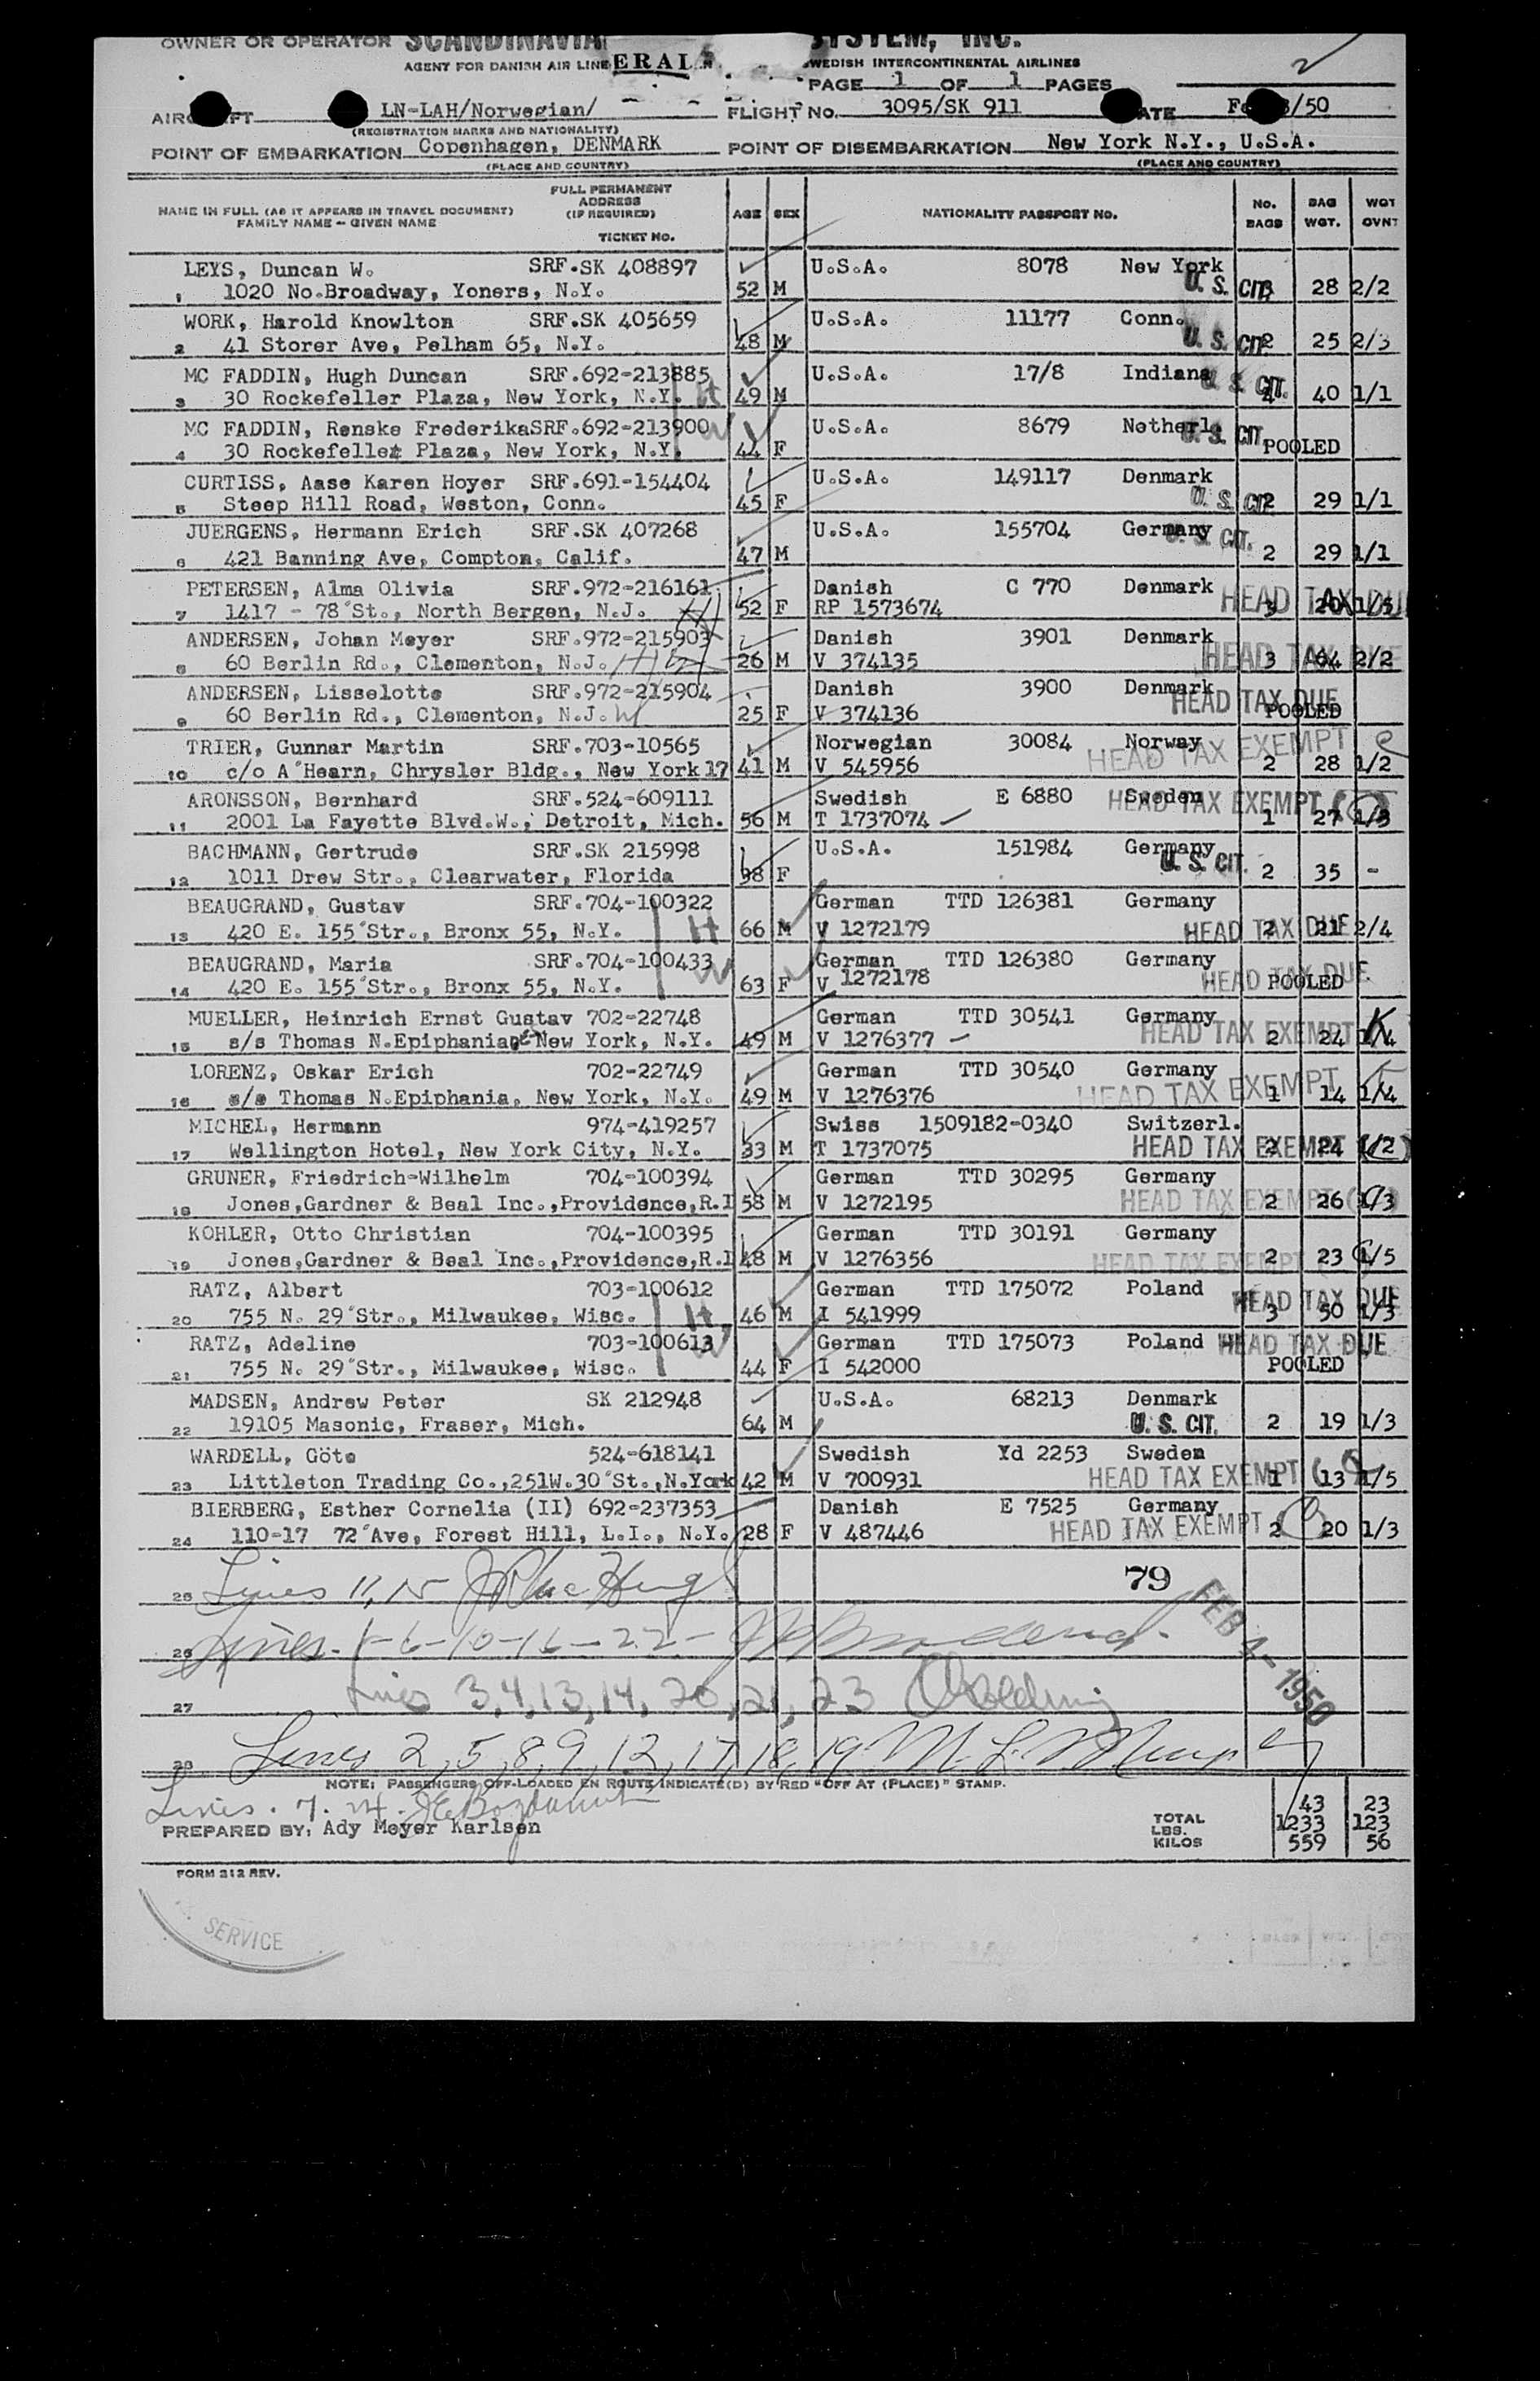 OWNER OR OPERATOR SCANDINAVIAN SYSTEM, INC.
AGENT FOR DANISH AIR LINE ERAL SWEDISH INTERCONTINENTAL AIRLINES
PAGE 1 OF 1 PAGES
LN-LAH/Norwegian/ FLIGHT No. 3095/SK 911 /50
(REGISTRATION MARKS AND NATIONALITY)
POINT OF EMBARKATION Copenhagen, DENMARK POINT OF DISEMBARKATION New York N.Y., U.S.A.
(PLACE AND COUNTRY) (PLACE AND COUNTRY)
NAME IN FULL (AS IT APPEARS IN TRAVEL DOCUMENT) FAMILY NAME - GIVEN NAME FULL PERMANENT ADDRESS (IF REQUIRED) TICKET NO. AGE SEX NATIONALITY PASSPORT NO. NO. BAGS BAG WGT. WGT OVNT
LEYS, Duncan W. SRF.SK 408897 U.S.A. 8078 New York
1 1020 No.Broadway, Yoners, N.Y. 52 M U. S. CIT. 3 28 2/2
WORK, Harold Knowlton SRF.SK 405659 U.S.A. 11177 Conn.
2 41 Storer Ave, Pelham 65, N.Y. 48 M U. S. CIT. 2 25 2/3
MC FADDIN, Hugh Duncan SRF.692-213885 U.S.A. 17/8 Indiana
3 30 Rockefeller Plaza, New York, N.Y. H 49 M U. S. CIT. 4 40 1/1
MC FADDIN, Renske Frederika SRF.692-213900 U.S.A. 8679 Netherl.
4 30 Rockefeller Plaza, New York, N.Y. W 44 F U. S. CIT. POOLED
CURTISS, Aase Karen Hoyer SRF.691-154404 U.S.A. 149117 Denmark
5 Steep Hill Road, Weston, Conn. 45 F U. S. CIT. 2 29 1/1
JUERGENS, Hermann Erich SRF.SK 407268 U.S.A. 155704 Germany
6 421 Banning Ave, Compton, Calif. 47 M U. S. CIT. 2 29 1/1
PETERSEN, Alma Olivia SRF.972-216161 Danish C 770 Denmark
7 1417 - 78´St., North Bergen, N.J. 52 F RP 1573674 HEAD TAX DUE 3 20 1/3
ANDERSEN, Johan Meyer SRF.972-215903 Danish 3901 Denmark
8 60 Berlin Rd., Clementon, N.J. H 26 M V 374135 HEAD TAX DUE 3 64 2/2
ANDERSEN, Lisselotte SRF.972-215904 Danish 3900 Denmark
9 60 Berlin Rd., Clementon, N.J. W 25 F V 374136 HEAD TAX DUE POOLED
TRIER, Gunnar Martin SRF.703-10565 Norwegian 30084 Norway
10 c/o A´Hearn, Chrysler Bldg., New York 17 41 M V 545956 HEAD TAX EXEMPT 2 28 1/2
ARONSSON, Bernhard SRF.524-609111 Swedish E 6880 Sweden
11 2001 La Fayette Blvd.W., Detroit, Mich. 56 M T 1737074 HEAD TAX EXEMPT 1 27 1/3
BACHMANN, Gertrude SRF.SK 215998 U.S.A. 151984 Germany
12 1011 Drew Str., Clearwater, Florida 38 F U. S. CIT. 2 35 -
BEAUGRAND, Gustav SRF.704-100322 German TTD 126381 Germany
13 420 E. 155´Str., Bronx 55, N.Y. H 66 M V 1272179 HEAD TAX DUE 2 21 2/4
BEAUGRAND, Maria SRF.704-100433 German TTD 126380 Germany
14 420 E. 155´Str., Bronx 55, N.Y. W 63 F V 1272178 HEAD TAX DUE POOLED
MUELLER, Heinrich Ernst Gustav 702-22748 German TTD 30541 Germany
15 s/s Thomas N.Epiphania New York, N.Y. 49 M V 1276377 HEAD TAX EXEMPT 2 24 1/4
LORENZ, Oskar Erich 702-22749 German TTD 30540 Germany
16 s/s Thomas N.Epiphania, New York, N.Y. 49 M V 1276376 HEAD TAX EXEMPT 1 14 1/4
MICHEL, Hermann 974-419257 Swiss 1509182-0340 Switzerl.
17 Wellington Hotel, New York City, N.Y. 33 M T 1737075 HEAD TAX EXEMPT 2 24 1/2
GRUNER, Friedrich-Wilhelm 704-100394 German TTD 30295 Germany
18 Jones,Gardner & Beal Inc.,Providence,R.I 58 M V 1272195 HEAD TAX EXEMPT 2 26 1/3
KOHLER, Otto Christian 704-100395 German TTD 30191 Germany
19 Jones,Gardner & Beal Inc.,Providence,R.I 48 M V 1276356 HEAD TAX EXEMPT 2 23 1/5
RATZ, Albert 703-100612 German TTD 175072 Poland
20 755 N. 29´Str., Milwaukee, Wisc. H 46 M I 541999 HEAD TAX DUE 3 50 1/3
RATZ, Adeline 703-100613 German TTD 175073 Poland HEAD TAX DUE
21 755 N. 29´Str., Milwaukee, Wisc. W 44 F I 542000 POOLED
MADSEN, Andrew Peter SK 212948 U.S.A. 68213 Denmark
22 19105 Masonic, Fraser, Mich. 64 M U. S. CIT. 2 19 1/3
WARDELL, Göte 524-618141 Swedish Yd 2253 Sweden
23 Littleton Trading Co.,251W.30´St.,N.York 42 M V 700931 HEAD TAX EXEMPT 1 13 1/5
BIERBERG, Esther Cornelia (II) 692-237353 Danish E 7525 Germany
24 110-17 72´Ave, Forest Hill, L.I., N.Y. 28 F V 487446 HEAD TAX EXEMPT 2 20 1/3
25 Lines 11, 15 79
26 Lines. 1-6-10-16-22- FEB 4-1950
27 Lines 3,4,13,14, 20,21, 23
28 Lines 2,5,8,9,12,17,18,19
NOTE: PASSENGERS OFF-LOADED EN ROUTE INDICATE(D) BY RED "OFF AT (PLACE)" STAMP.
Lines. 7.
43 23
PREPARED BY: Ady Meyer Karlsen TOTAL LBS. 1233 123
KILOS 559 56
FORM 212 REV.
SERVICE